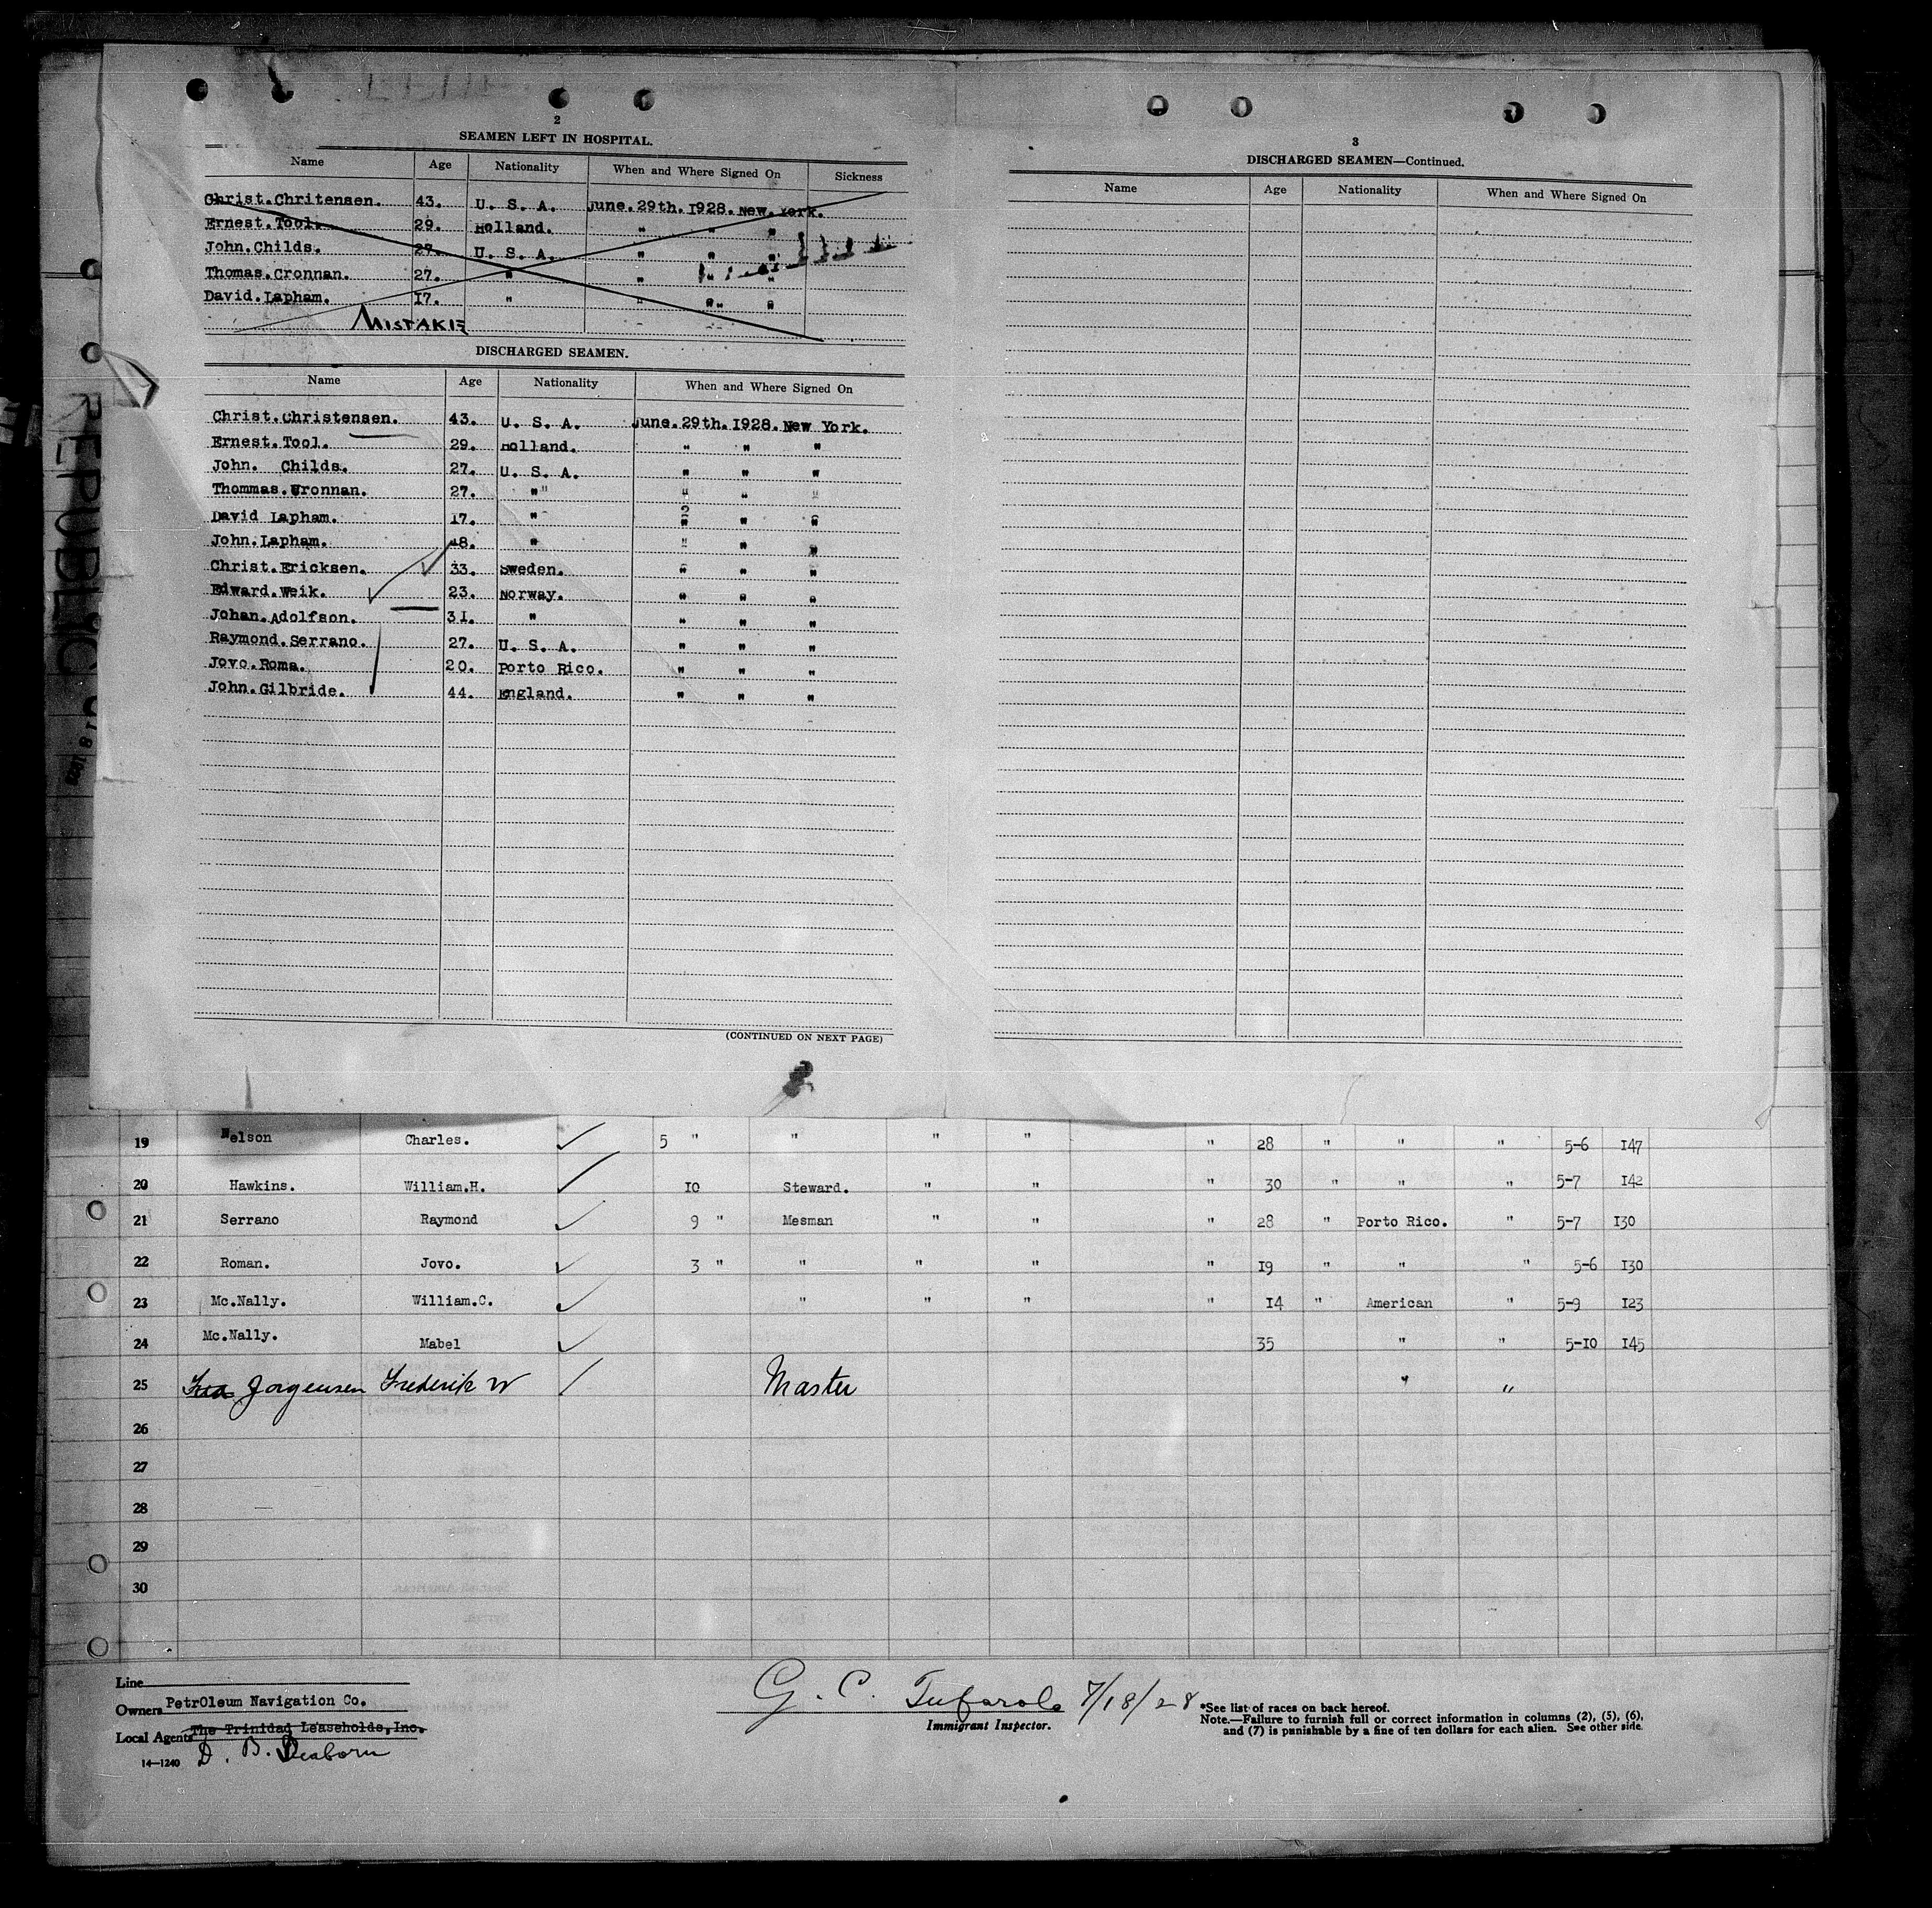 2
SEAMEN LEFT IN HOSPITAL.
Name Age Nationality When and Where Signed On Sickness
Christ.Chritensen. 43. U. S. A. June.29th.1928.New.York.
Ernest.Tool. 29. Holland. " " "
John.Childs. 27. U. S. A. " " "
Thomas.Cronnan. 27. " " " "
David.Lapham. 17. " " " "
MISTAKE
DISCHARGED SEAMEN.
Name Age Nationality When and Where Signed On
Christ.Christensen. 43. U. S. A. June.29th.1928.New York.
Ernest.Tool. 29. Holland. " " "
John. Childs. 27. U. S. A. " " "
Thommas.Cronnan. 27. "" " " "
David Lapham. 17. " " " "
John.Lapham. 18. " " " "
Christ.Ericksen. 33. Sweden. " " "
Edward.Weik. 23. Norway. " " "
Johan.Adolfson. 31. " " " "
Raymond.Serrano. 27. U. S. A. " " "
Jovo.Roma. 20. Porto Rico. " " "
John.Gilbride. 44. England. " " "
(CONTINUED ON NEXT PAGE)
3
DISCHARGED SEAMEN—Continued.
Name Age Nationality When and Where Signed On
REPUBLIC
19 Nelson Charles. ✓ 5 " " " " " 28 " " " 5-6 147
20 Hawkins. William.H. ✓ 10 Steward. " " " 30 " " " 5-7 142
21 Serrano Raymond ✓ 9 " Mesman " " " 28 " Porto Rico. " 5-7 130
22 Roman. Jovo. ✓ 3 " " " " " 19 " " " 5-6 130
23 Mc.Nally. William.C. ✓ " " " " 14 " American " 5-9 123
24 Mc.Nally. Mabel ✓ 35 " " 5-10 145
25 Fred Jorgensen Frederik W ✓ Master " "
26
27
28
29
30
Line
Owners PetrOleum Navigation Co.
Local Agents The Trinidad Leaseholds, Inc.
D. B. Dearborn
14—1240
G. C. 7/18/28
Immigrant Inspector.
*See list of races on back hereof.
Note.—Failure to furnish full or correct information in columns (2), (5), (6),
and (7) is punishable by a fine of ten dollars for each alien. See other side.